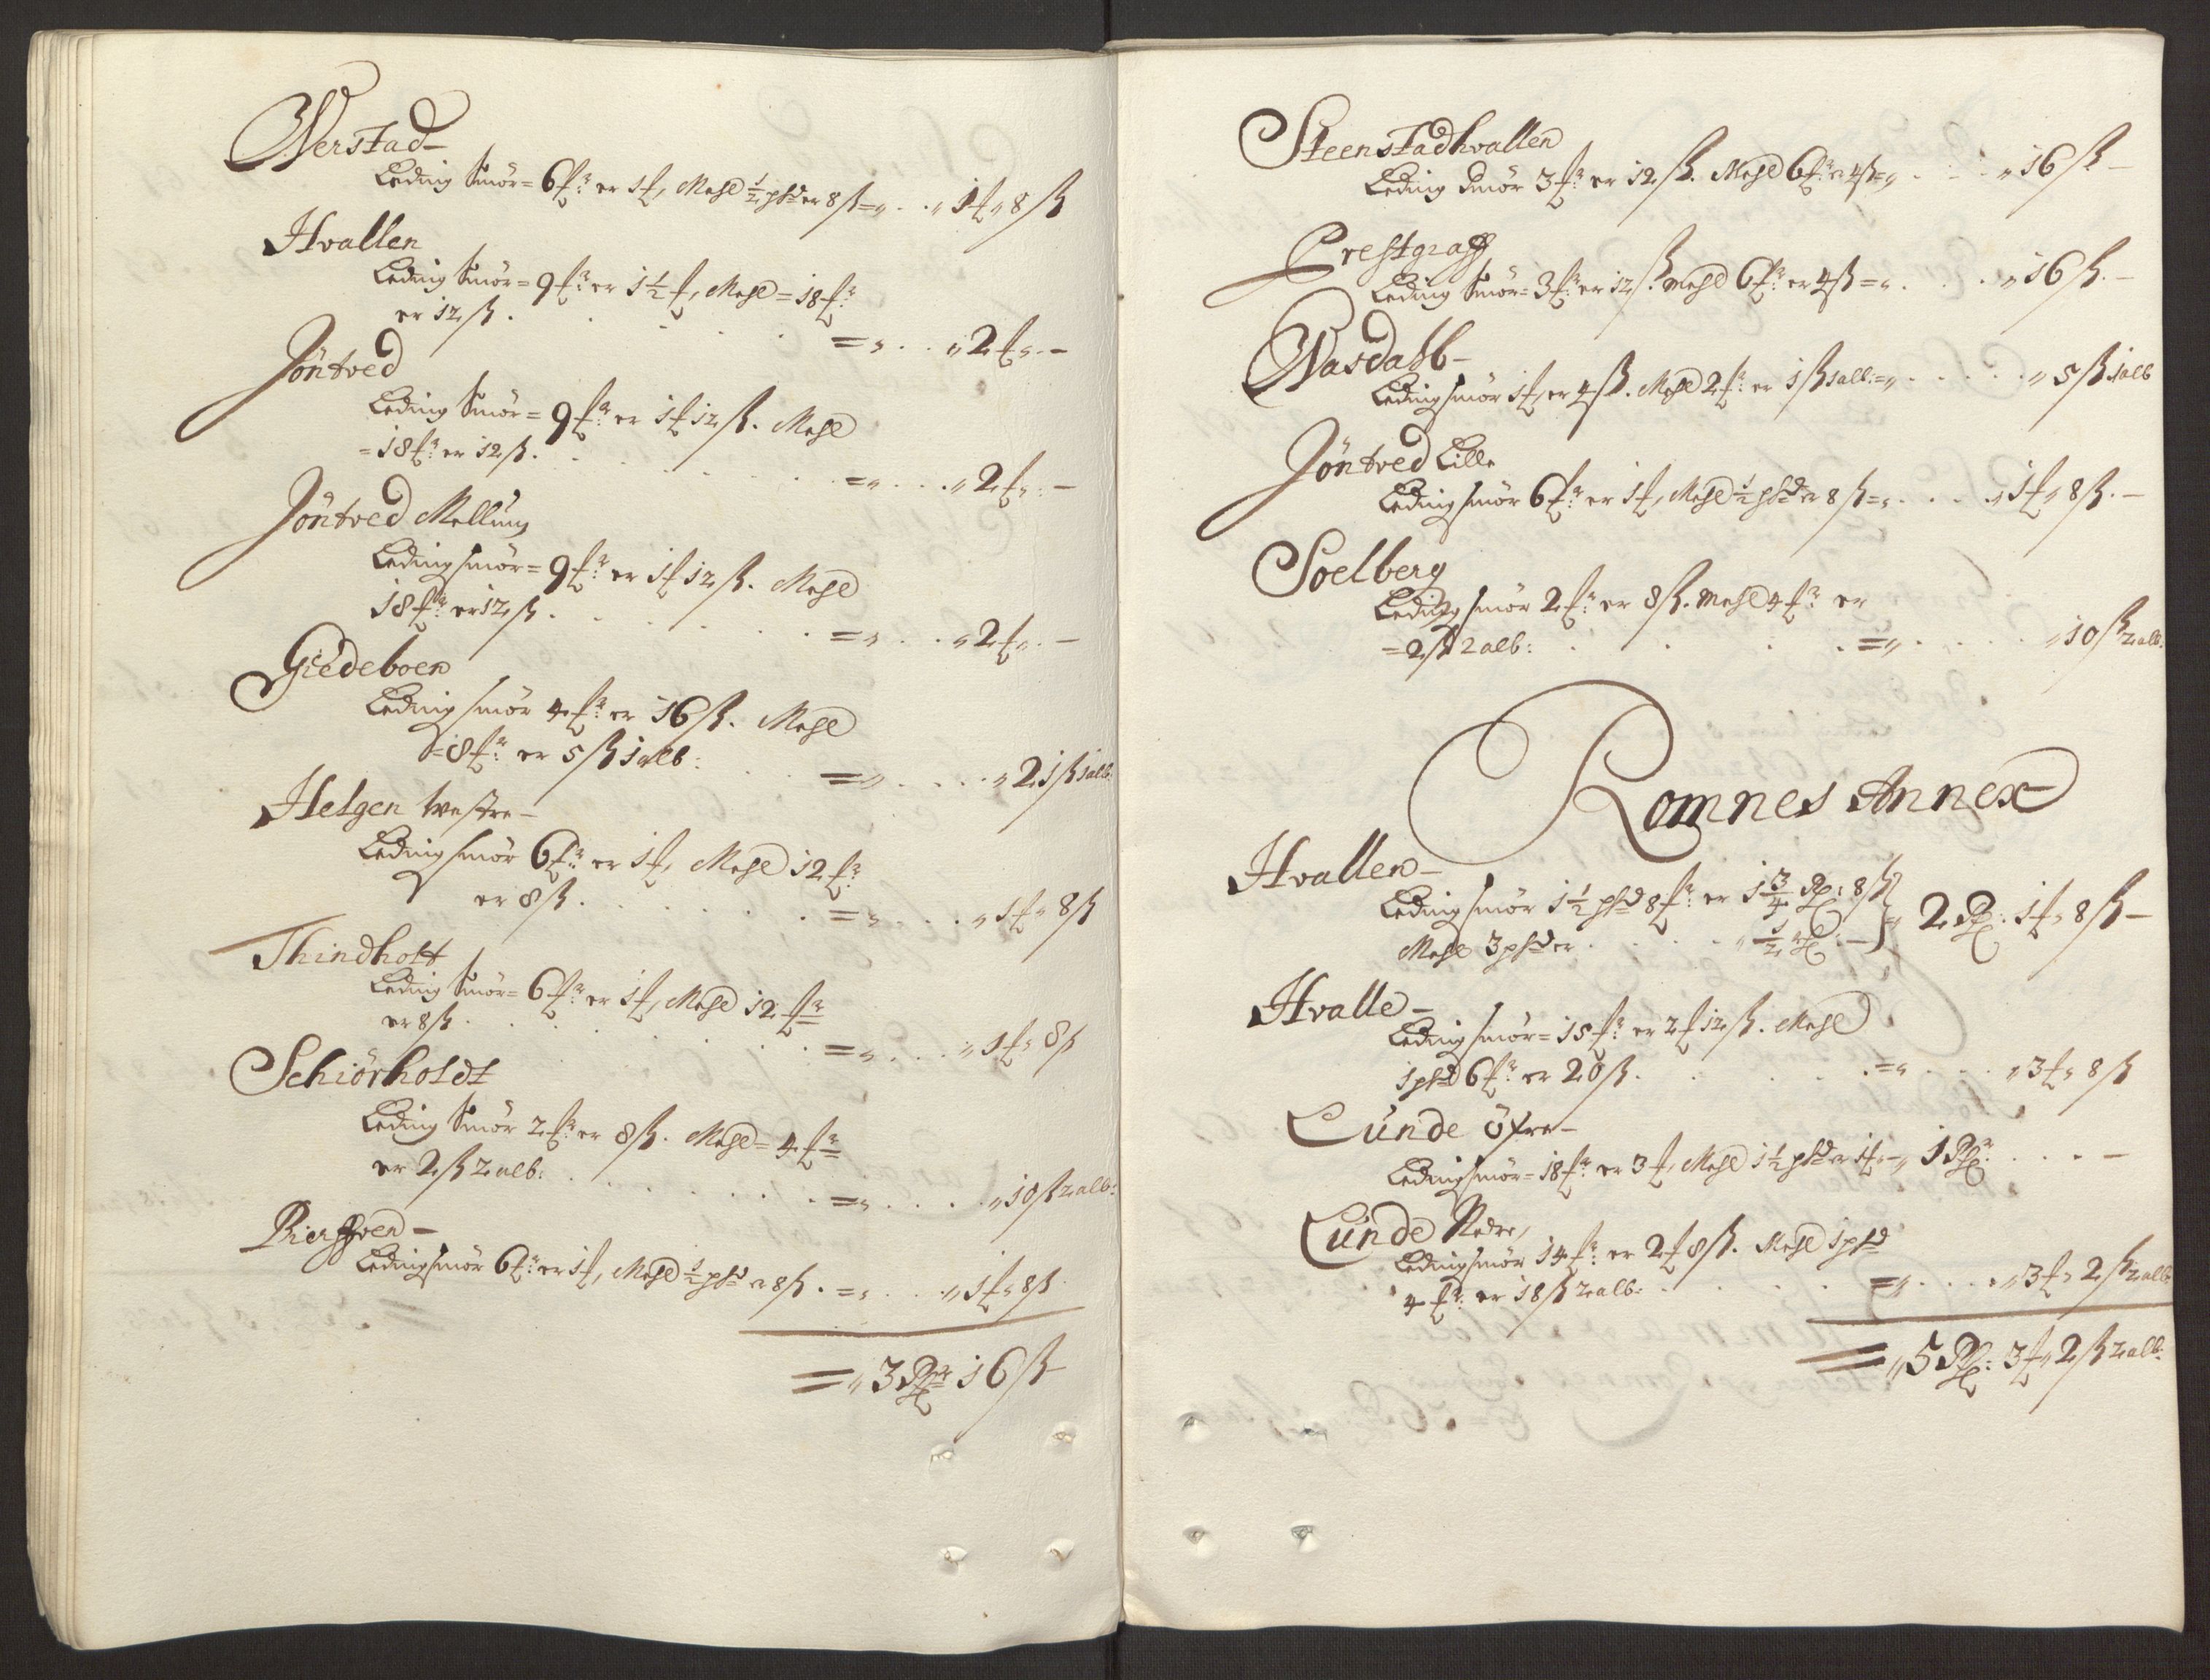 Werstad
Leding Smör = 6 ℔r: er 1 ℔, Mehl ½ phd er 8 ß = „ . . „ 1 ℔ „ 8 ß
Hvallen
Leding Smör = 9 ℔r: er 1½ ℔, Mehl = 18 ℔r:
er 12 ß . . . . = „ . . „ 2 ℔ „ . –
Jöntved
Leding Smör = 9 ℔r: er 1 ℔ 12 ß. Mehl
= 18 ℔r: er 12 ß. . . . = „ . . . „ 2 ℔ „ . –
Jöntved Mellum
Leding smör = 9 ℔r: er 1 ℔ 12 ß. Mehl
18 ℔r: er 12 ß . . . . = „ . . „ 2 ℔ „ . –
Giedeboen
Leding smör 4 ℔r: er 16 ß. Mehl
= 8 ℔r: er 5 ß 1 alb: . . = „ . . . „ 21 ß 1 alb:
Helgen Westre –
Leding smör 6 ℔r: er 1 ℔, Mehl 12 ℔r:
er 8 ß . . . . = „ . . . „ 1 ℔ „ 8 ß
Thindholt
Leding Smör = 6 ℔r: er 1 ℔, Mehl 12 ℔r:
er 8 ß . . . . = „ . . . „ 1 ℔ „ 8 ß
Schiörholdt
Leding Smör 2 ℔r: er 8 ß. Mehl = 4 ℔r:
er 2 ß 2 alb: . . . . = „ . . . „ 10 ß 2 alb:
Leding smör 6 ℔r: er 1 ℔, Mehl ½ phd er 8 ß . = „ . . „ 1 ℔ „ 8 ß
= „ 3 Rdr 16 ß
Steenstadhvallen
Leding Smör 3 ℔r: er 12 ß. Mehl 6 ℔r: er 4 ß = „ . . . „ 16 ß –
Prestgraff
Leding Smör = 3 ℔r: er 12 ß. Mehl 6 ℔r: er 4 ß = „ . . . „ 16 ß. –
Wasdahl –
Leding smör 1 ℔, er 4 ß. Mehl 2 ℔r: er 1 ß 1 alb: = „ . . . . „ 5 ß 1 alb
Jöntved Lille
Leding smör 6 ℔r: er 1 ℔, Mehl ½ phd er 8 ß = „ . . . „ 1 ℔ „ 8 ß. –
Soelberg
Leding smör 2 ℔r: er 8 ß. Mehl 4 ℔r: er
= 2 ß 2 alb: . . . . = „ . . . . „ 10 ß 2 alb:
Romnes Annex
Hvallen –
Leding smör 1½ phd 8 ℔r: er 1¾ Rd: 8 ß
Mehl 3 phd er . . . „ ½ Rd: – } = „ 2 Rd: 1 ℔ „ 8 ß –
Hvalle –
Leding smör = 15 ℔r: er 2 ℔ 12 ß. Mehl
1 phd 6 ℔r: er 20 ß. . . . = „ . . . „ 3 ℔ „ 8 ß
Lunde öfre –
Leding smör = 18 ℔r: er 3 ℔, Mehl 1½ phd er 1 ℔ = „ 1 Rdr: . . . –
Lunde Nedre,
Leding smör 14 ℔r: er 2 ℔ 8 ß. Mehl 1 phd
4 ℔r: er 18 ß 2 alb: . . . . = „ . . . „ 3 ℔ „ 2 ß 2 alb:
= „ 5 Rd: 3 ℔ „ 2 ß 2 alb: